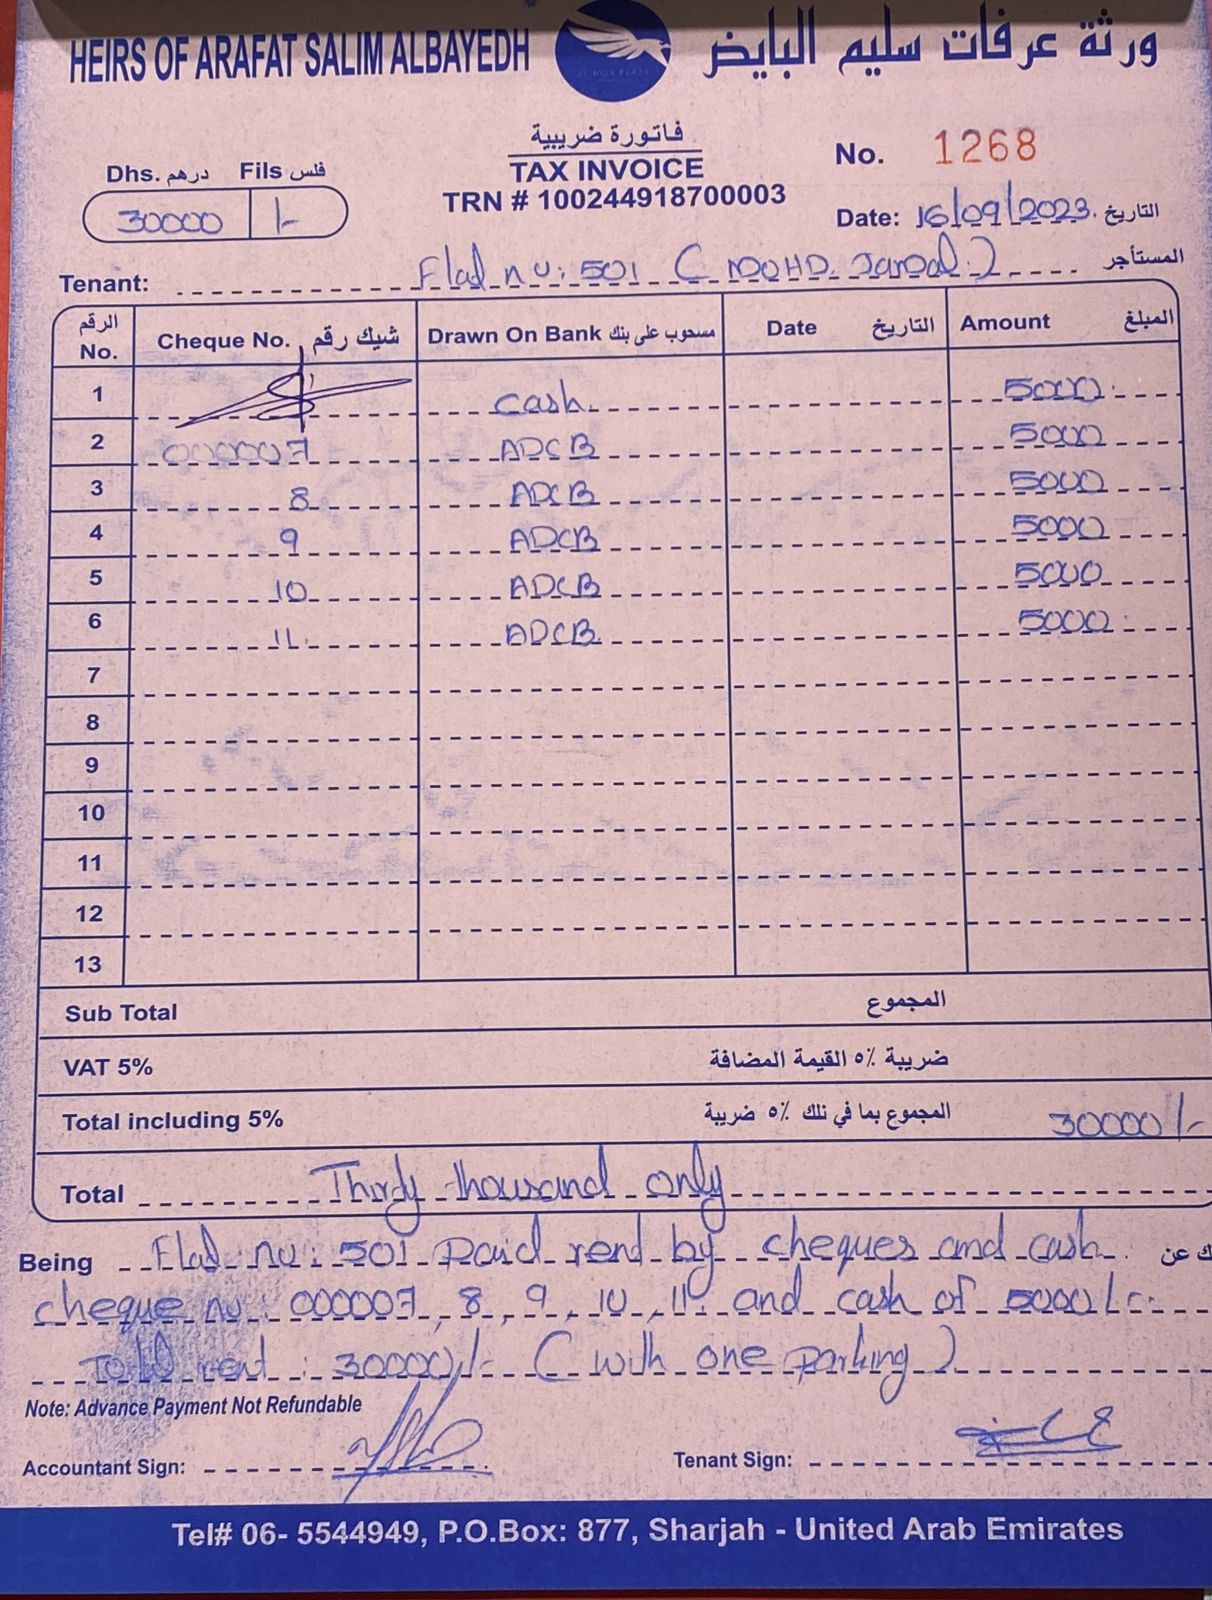 HEIRS OF ARAFAT SALIM ALBAYEDH ورثة عرفات سليم البايض
فاتورة ضريبية
TAX INVOICE
TRN # 100244918700003
Dhs. درهم Fils فلس
30000 /-
No. 1268
Date: 16/09/2023. التاريخ
Tenant: Flat no: 501 ( MOHD. Jamal ) المستأجر
الرقم No. Cheque No. شيك رقم Drawn On Bank مسحوب على بنك Date التاريخ Amount المبلغ
1 cash 5000
2 000007 ADCB 5000
3 8 ADCB 5000
4 9 ADCB 5000
5 10 ADCB 5000
6 11 ADCB 5000
7
8
9
10
11
12
13
Sub Total المجموع
VAT 5% ضريبة ٥٪ القيمة المضافة
Total including 5% المجموع بما في ذلك ٥٪ ضريبة 30000/-
Total Thirty thousand only
Being Flat no: 501 Paid rent by cheques and cash. ك عن
cheque no: 000007, 8, 9, 10, 11. and cash of 5000/-
Total rent: 30000/- ( with one parking )
Note: Advance Payment Not Refundable
Accountant Sign: Tenant Sign:
Tel# 06- 5544949, P.O.Box: 877, Sharjah - United Arab Emirates